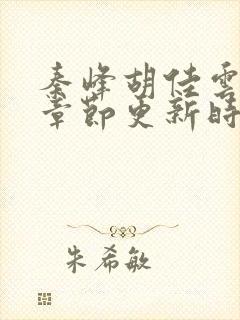 秦峰胡佳雲
章節更新時
朱希敏